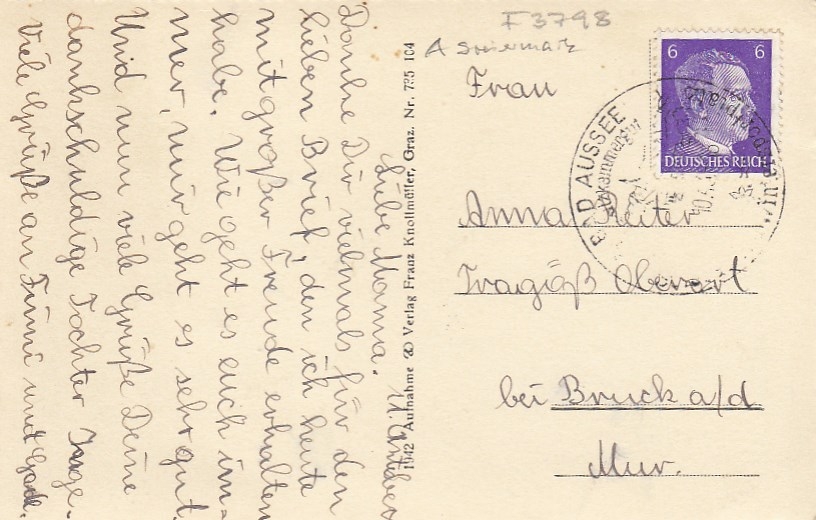 F 3798
A Steiermark
6 6
DEUTSCHES REICH
BAD AUSSEE
Salzkammergut
Frau
Anna Reiter
Tragöß Oberort
bei Bruck a/d
Mur.
1942 Aufnahme u. Verlag Franz Knollmüller, Graz. Nr. 725 104
Liebe Mama.
Danke Dir vielmals für den
lieben Brief, den ich heute
mit großer Freude erhalten
habe. Wie geht es euch im=
mer, mir geht es sehr gut.
Und nun viele Grüße Deine
dankschuldige Tochter Inge.
Viele Grüße an Finni und